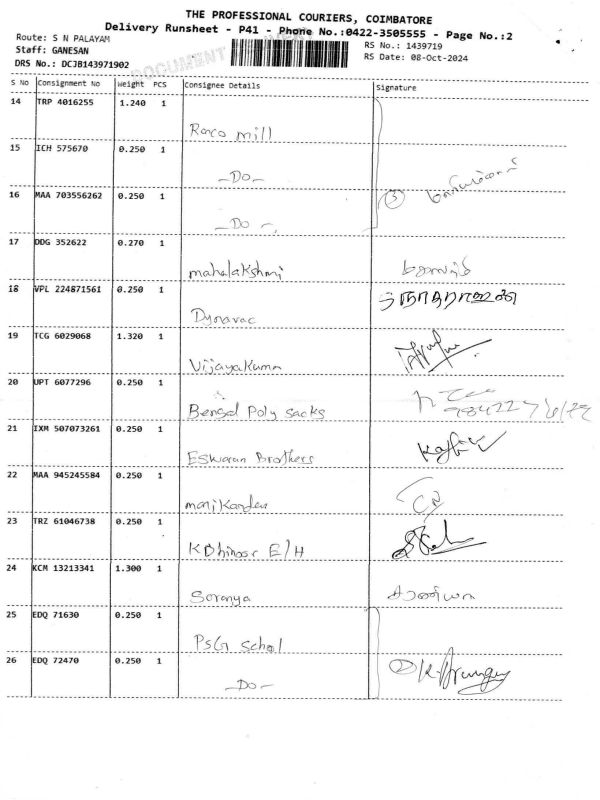 THE PROFESSIONAL COURIERS, COIMBATORE
Delivery Runsheet - P41 - Phone No.:0422-3505555 - Page No.:2
Route: S N PALAYAM
RS No.: 1439719
Staff: GANESAN
RS Date: 08-Oct-2024
DRS No.: DCJB143971902
DOCUMENT
S No Consignment No Weight PCS Consignee Details Signature
14 TRP 4016255 1.240 1
Roxco mill
15 ICH 575670 0.250 1
-Do-
16 MAA 703556262 0.250 1
-Do-
3
17 DDG 352622 0.270 1
mahalakshmi
18 VPL 224871561 0.250 1
Dynavac
19 TCG 6029068 1.320 1
Vijayakuma
20 UPT 6077296 0.250 1
Bengal Poly sacks
21 IXM 507073261 0.250 1
Eswaran Brothers
22 MAA 945245584 0.250 1
manikanden
23 TRZ 61046738 0.250 1
K Dhinoor E/H
24 KCM 13213341 1.300 1
Soranya
25 EDQ 71630 0.250 1
PSG School
26 EDQ 72470 0.250 1
-Do-
2